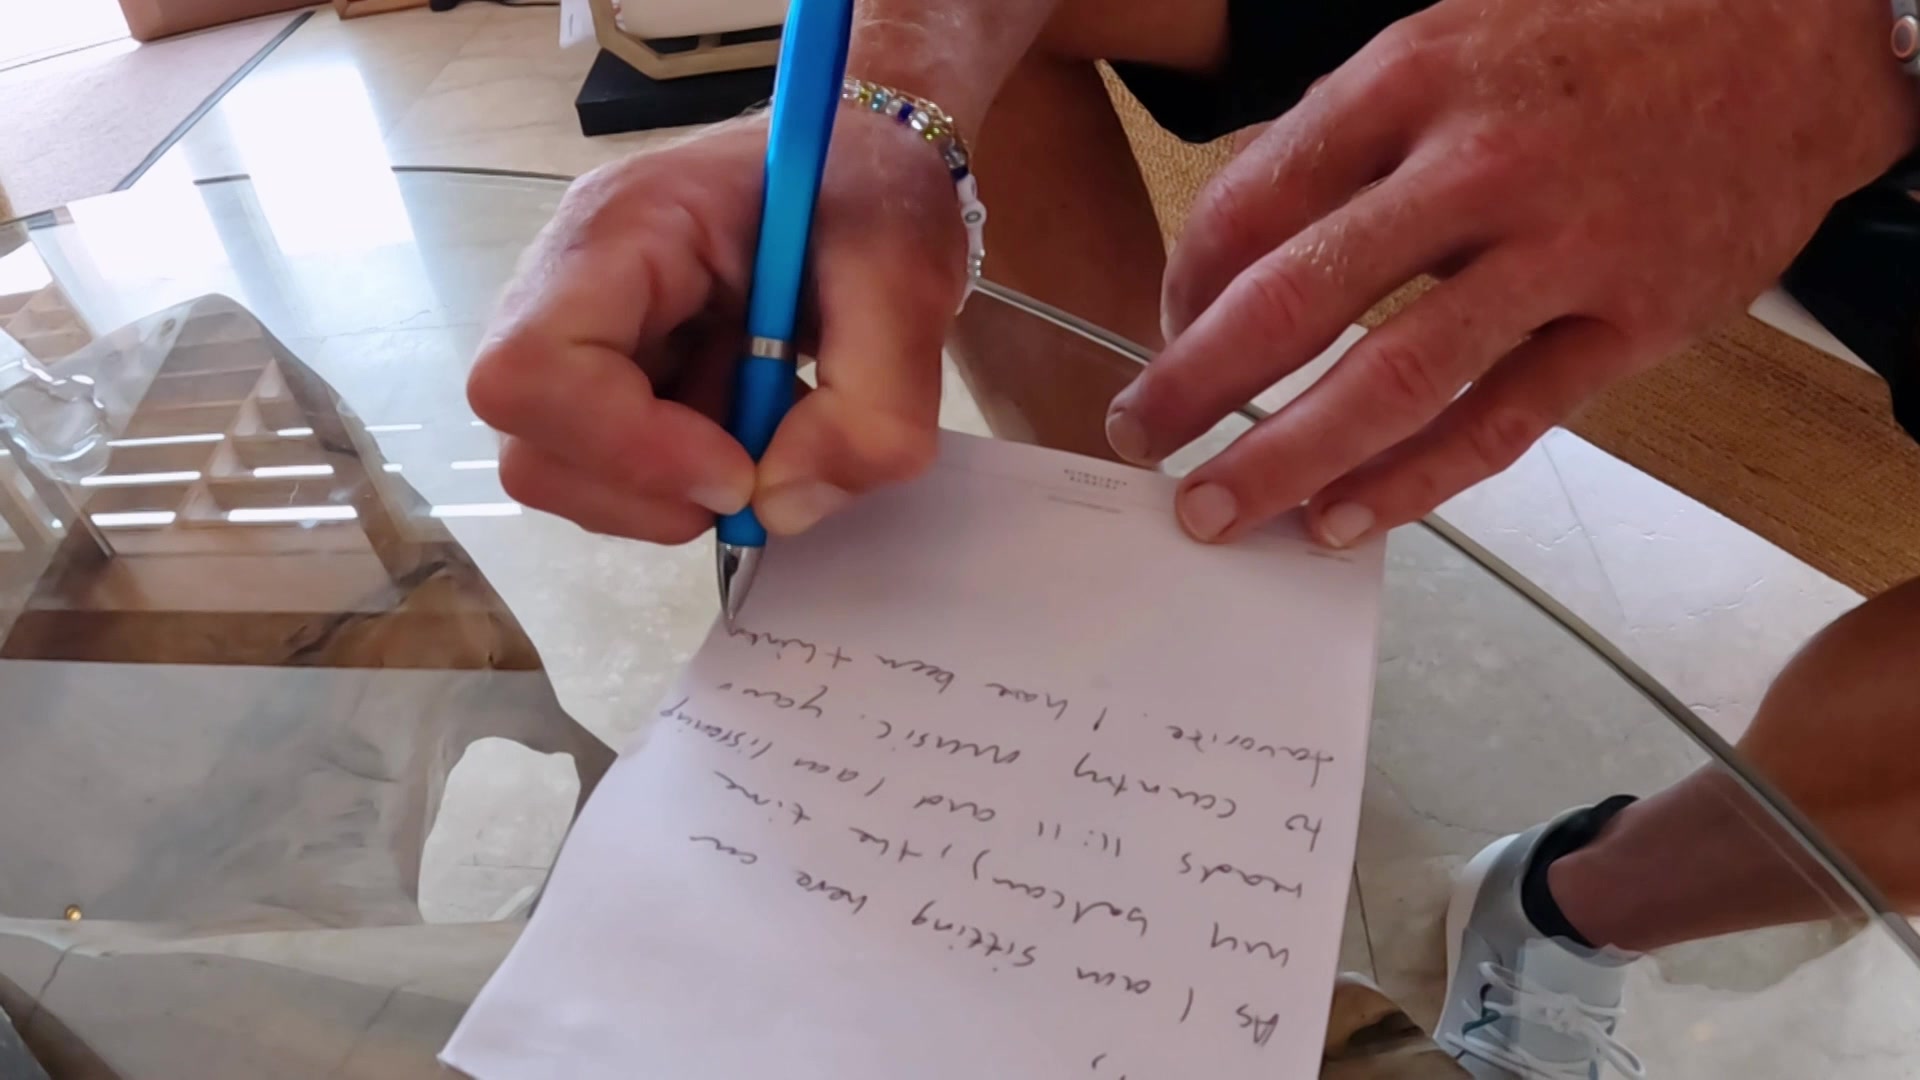 As I am sitting here on
my balcony, the time
reads 11:11 and I am listening
to country music. your
favorite. I have been thinkin